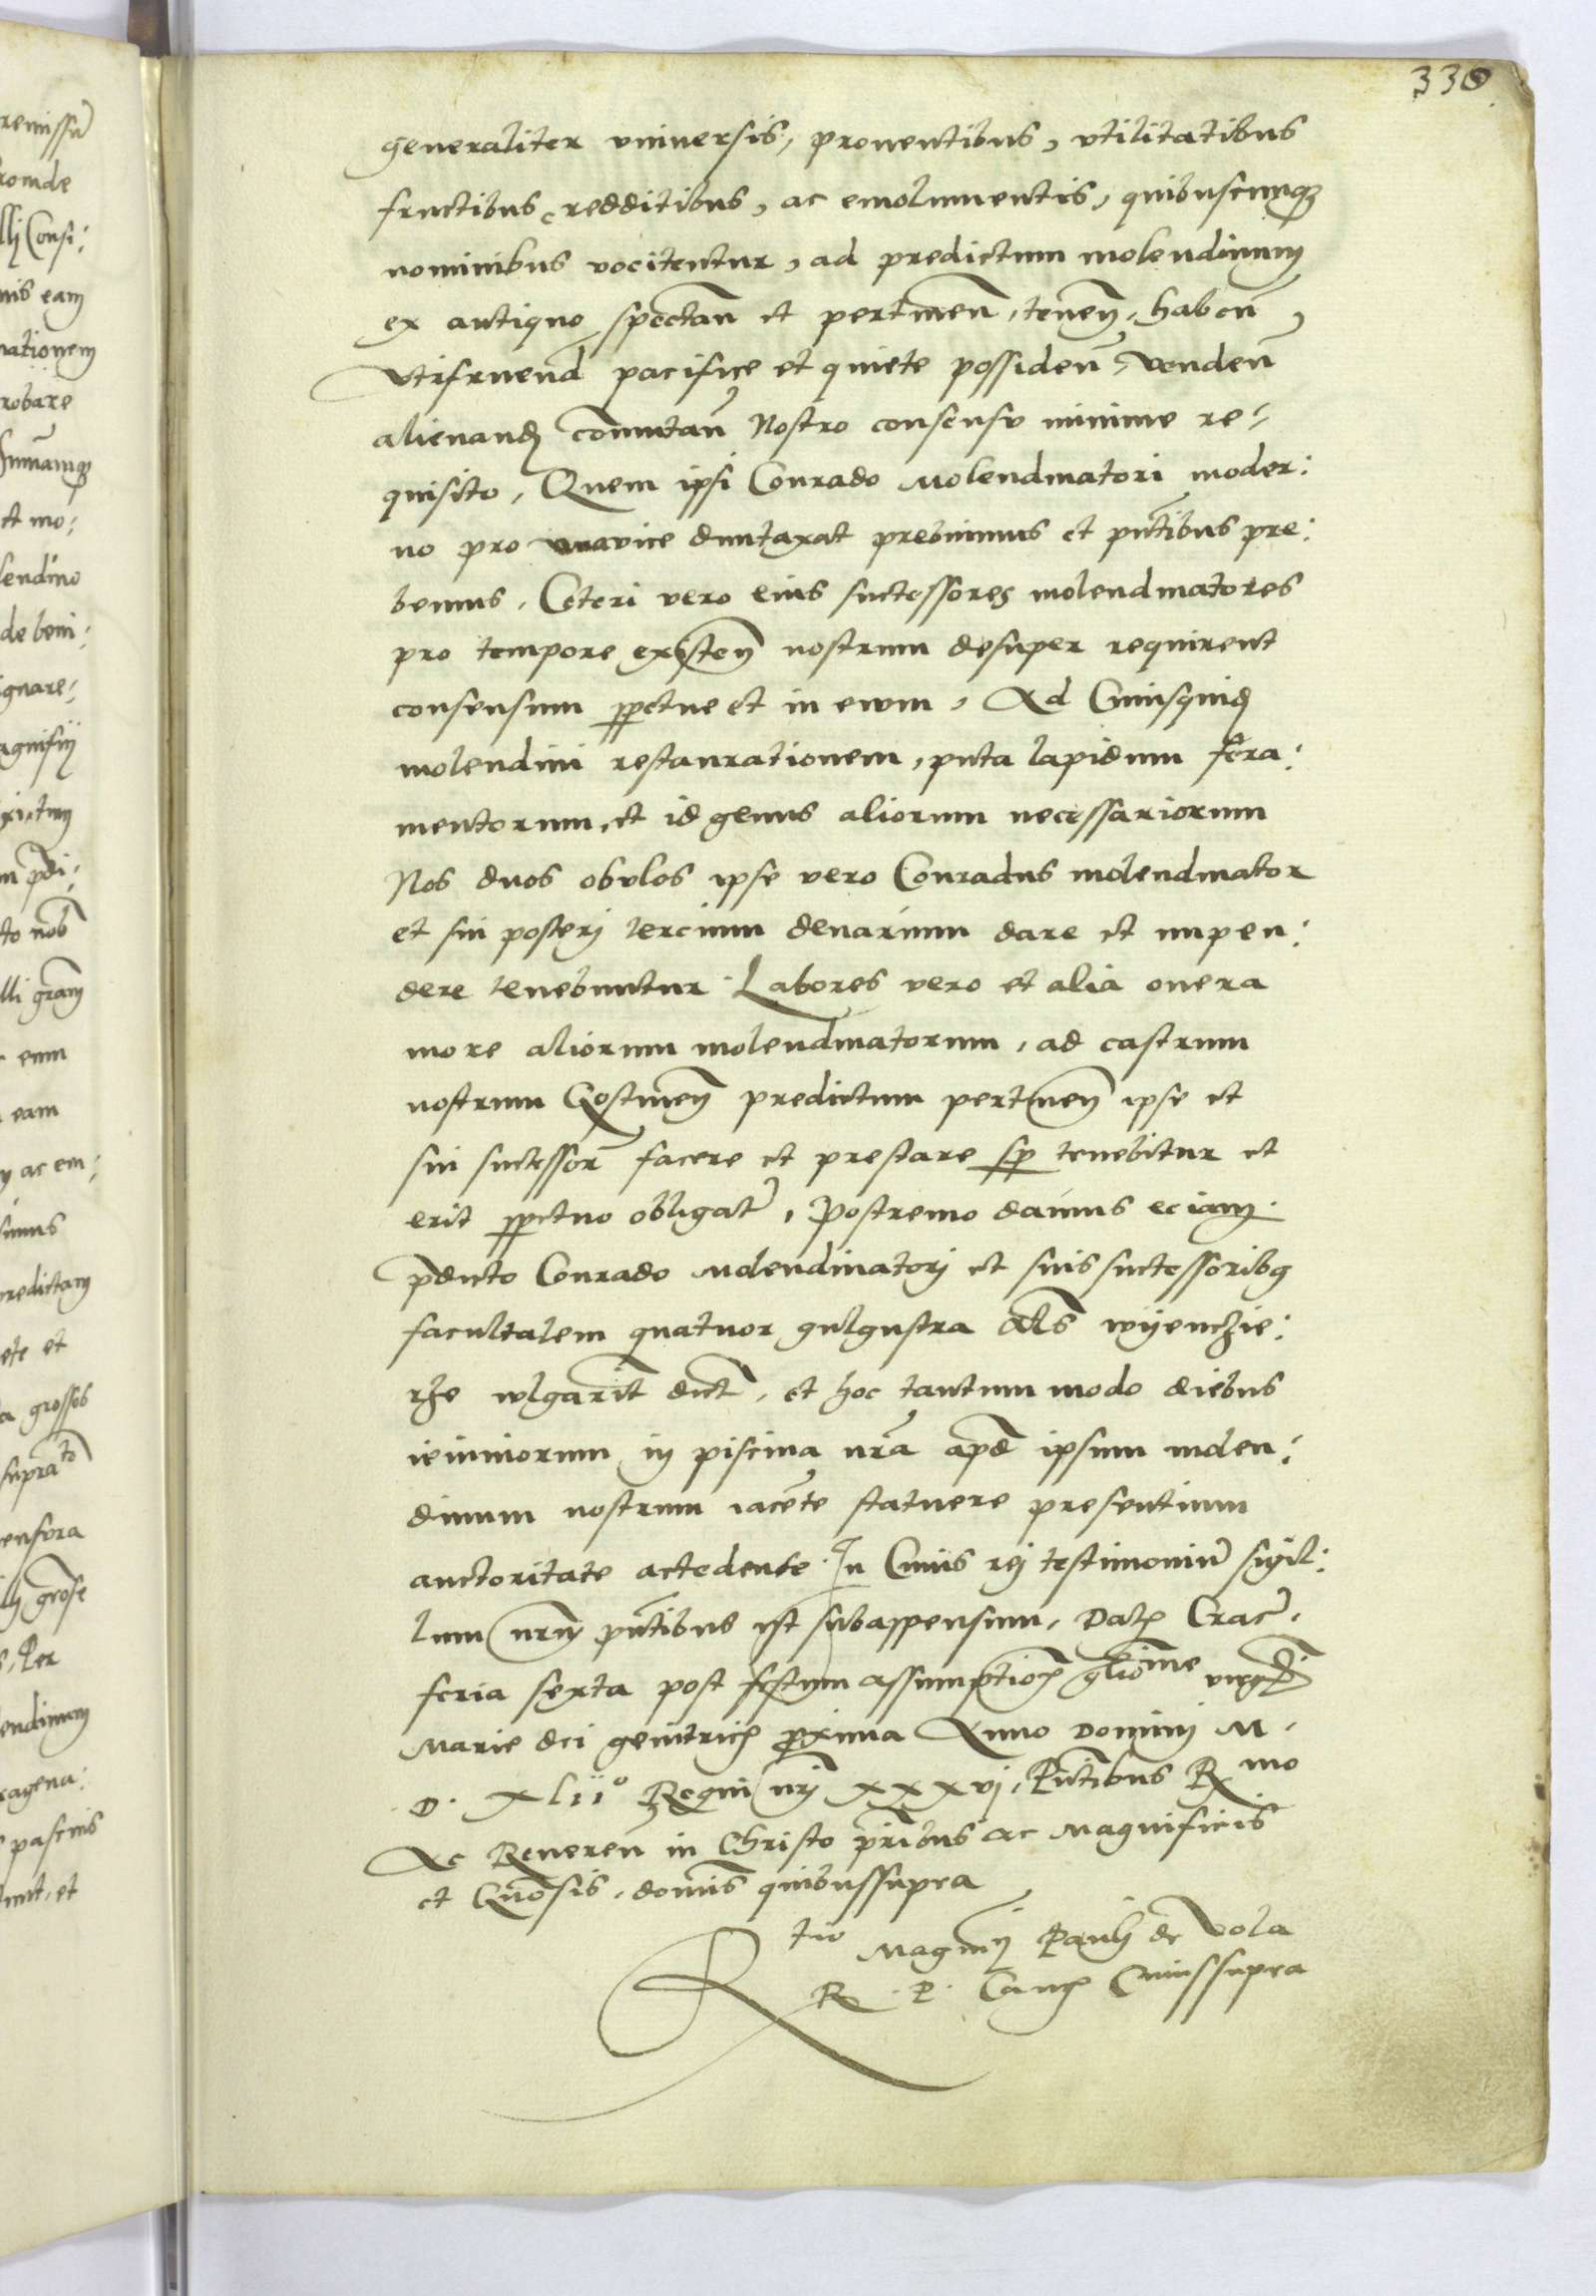 330
generaliter vniuersis, prouentibus, vtilitatibus
fructibus, redditibus, ac emolumentis, quibuscunqꝫ
nominibus vocitentur, ad predictum molendinum
ex antiquo spectan̄ et pertinen̄, tenen̄, haben̄,
vtifruend̄ pacifice et quiete possiden̄, venden̄
alienand̄ com̄utan̄ Nostro consensu minime re-
quisito, Quem ipsi Conrado Molendinatori moder:
no pro vnavice duntaxat prebuimus et pn̄tibus pre:
bemus. Ceteri vero eius successores molendinatores
pro tempore existen̄ nostrum desuper requirent
consensum ꝑpetue et in ewm, Ad Cuiusquid
molendini restaurationem, puta lapidum fera:
mentorum, et id genus aliorum necessariorum
Nos duos obulos ipse vero Conradus molendinator
et sui posterj tercium denarium dare et impen:
dere tenebuntur. Labores vero et alia onera
more aliorum molendinatorum, ad castrum
nostrum Gostinen̄ predictum pertinen̄ ipse et
sui successor̄ facere et prestare sꝑ tenebitur et
erit ꝑpetuo obligat9, Postremo damus eciam
p̄dicto Conrado Molendinatorj et suis successoribꝫ
facultatem quatuor gulgustra al̄s wÿenczie:
rze wlgarit̄ dict̄, et hoc tantummodo diebus
ieiuniorum in piscina nr̄a apd̄ ipsum molen:
dinum nostrum iacēte statuere presentium
auctoritate accedente. In Cuius rej testimoniū sigil:
lum nr̄m pn̄tibus est subappensum. Datꝫ Crac̄.
feria sexta post festum Assumptionꝫ glīome virgī
Marie dei genitricꝫ proxima Anno Dominj M.
D. xlii° Regni nr̄j xxxvj, Pn̄tibus R mo
Ac Reueren̄ in Christo pr̄ibus ac Magnificis
et Gn̄osis, domīs quibussupra
Rtio Magcī Paulj de Vola
R. P. Cancꝫ Cuiussupra